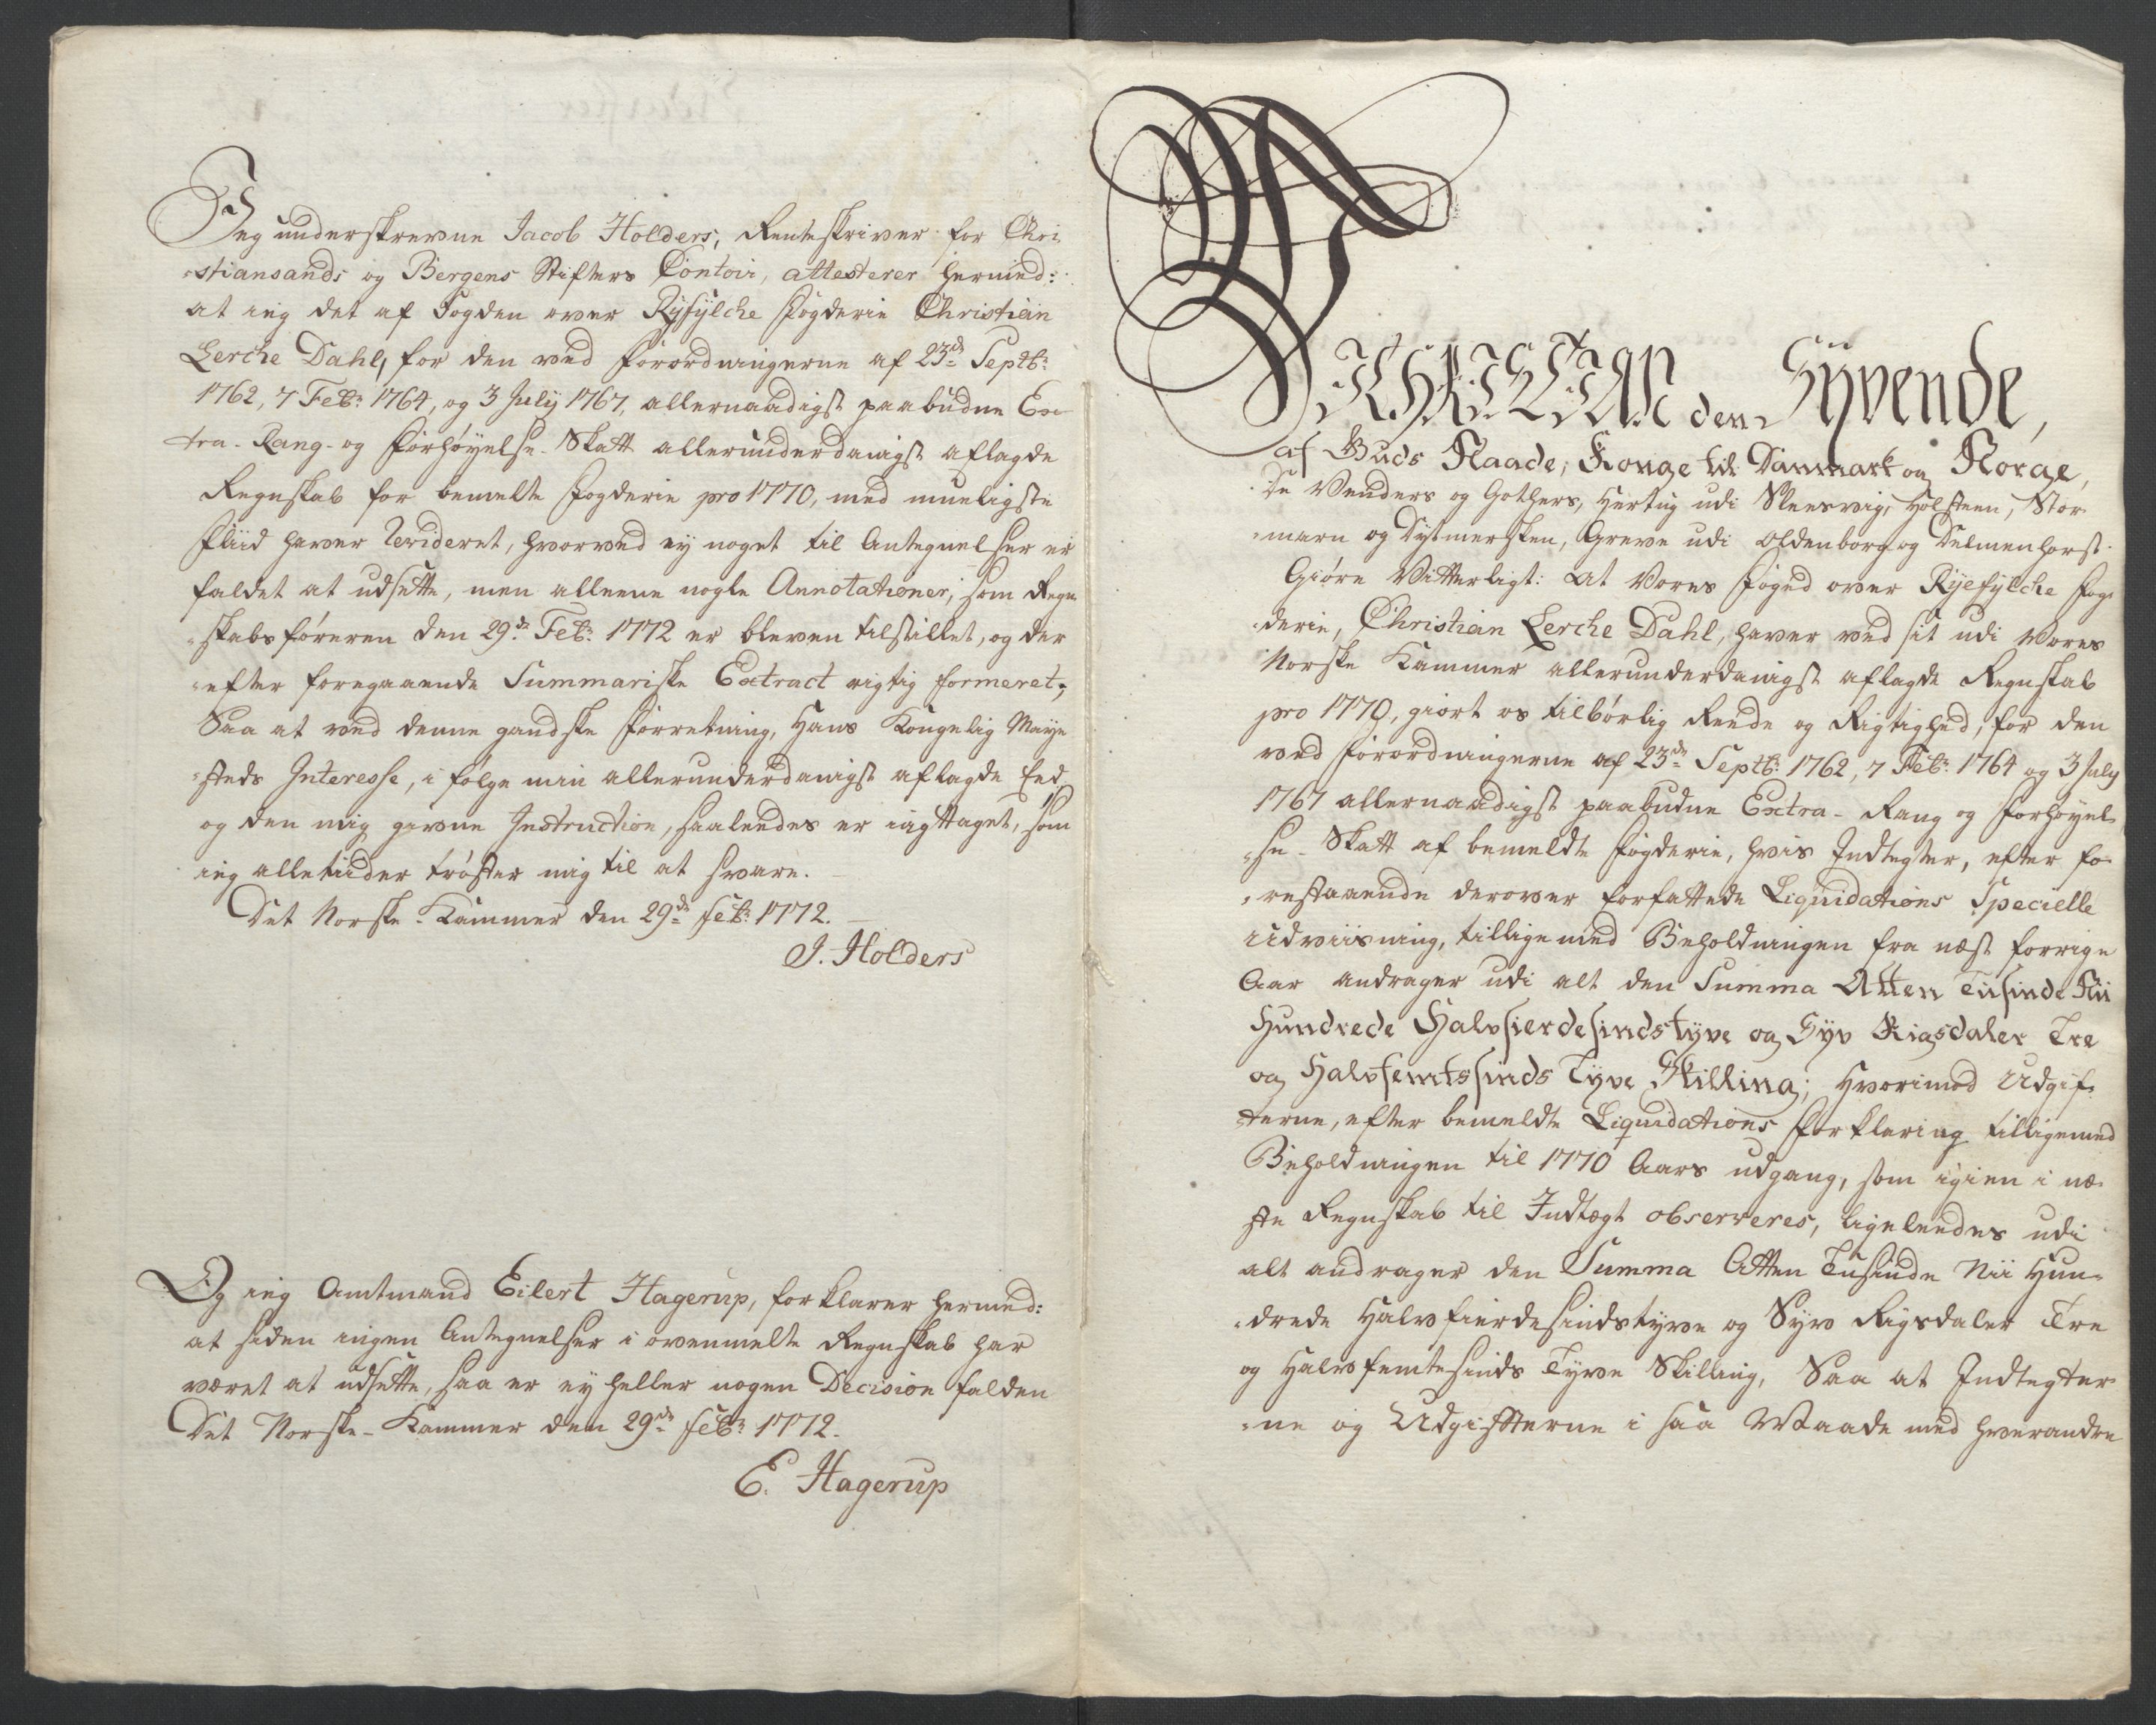 Jeg underskrevne Jacob Holders, Renteskriver for Chri
-stiansands og Bergens Stifters Contoir, attesterer hermed:
at ieg det af Fogden over Rysylche Fogderie Christian
Lerche Dahl, for den ved Forordningerne af 23de Septbr
1762, 7 Febr 1764, og 3 July 1767, allernaadigst paabudne Ex-
tra- Rang- og Forhøyelse- Skatt allerunderdanigst aflagde
Regnskab for bemelte Fogderie pro 1770, med mueligste
Fliid haver Revideret, hvorved ey noget til Antegnelser er
faldet at udsette, men alleene nogle Annotationer, som Regn
-skabsføreren den 29de Febr 1772 er bleven tilstillet, og der
-efter foregaaende Summariske Extract rigtig formeret;
Saa at ved denne gandske Forretning, Hans Kongelig Maye
-steds Interesse, i følge min allerunderdanigst aflagde Eed
og den mig givne Instruction, saaledes er iagttaget, som
ieg alletiider trøster mig til at svare.
Det Norske Kammer den 29de Febr 1772.
J. Holders
Og ieg Amtmand Eilert Hagerup, forklarer hermed:
at siden ingen Antegnelser i ovenmelte Regnskab har
været at udsette, saa er ey heller nogen Decision falden
Det Norske- Kammer den 29de Febr 1772.
E. Hagerup
Wi CHRISTIAN den Syvende,
af Guds Naade, Konge til Danmark og Norge,
De Venders og Gothers, Hertug udi Sleesvig, Holsteen, Stor
-marn og Dytmersken, Greve udi Oldenborg og Delmenhorst
Giøre Vitterligt: at Vores Foged over Ryefylche Fog-
-derie, Christian Lerche Dahl, haver ved sit udi Vores
Norske Kammer allerunderdanigst aflagde Regnskab
pro 1770, giort os tilbørlig Reede og Rigtighed, for den
ved Forordningerne af 23de Septbr 1762, 7 Febr 1764 og 3 July
1767 allernaadigst paabudne Extra- Rang og Forhøyel-
-se- Skatt af bemeldte Fogderie, hvis Indtegter, efter fo-
-restaaende derover forfattede Liquidations Specielle
Udviisning, tilligemed Beholdningen fra næst forrige
Aar andrager udi alt den Summa Atten Tusinde Nii
Hundrede Halvfierdesindstyve og Syv Rigsdaler Tre
og Halvfemtesinds Tyve Skilling; Hvorimod Udgif-
-terne, efter bemeldte Liquidations Forklaring tilligemed
Beholdningen til 1770 Aars udgang, som igien i næ-
ste Regnskab til Indtægt observeres, ligeleedes udi
alt andrager den Summa Atten Tusinde Nii Hun-
-drede Halvfierdesindstyve og Syv Rigsdaler Tre
og Halvfemtesinds Tyve Skilling, Saa at Indtegter
-ne og Udgifterne i saa Maade med hverandre